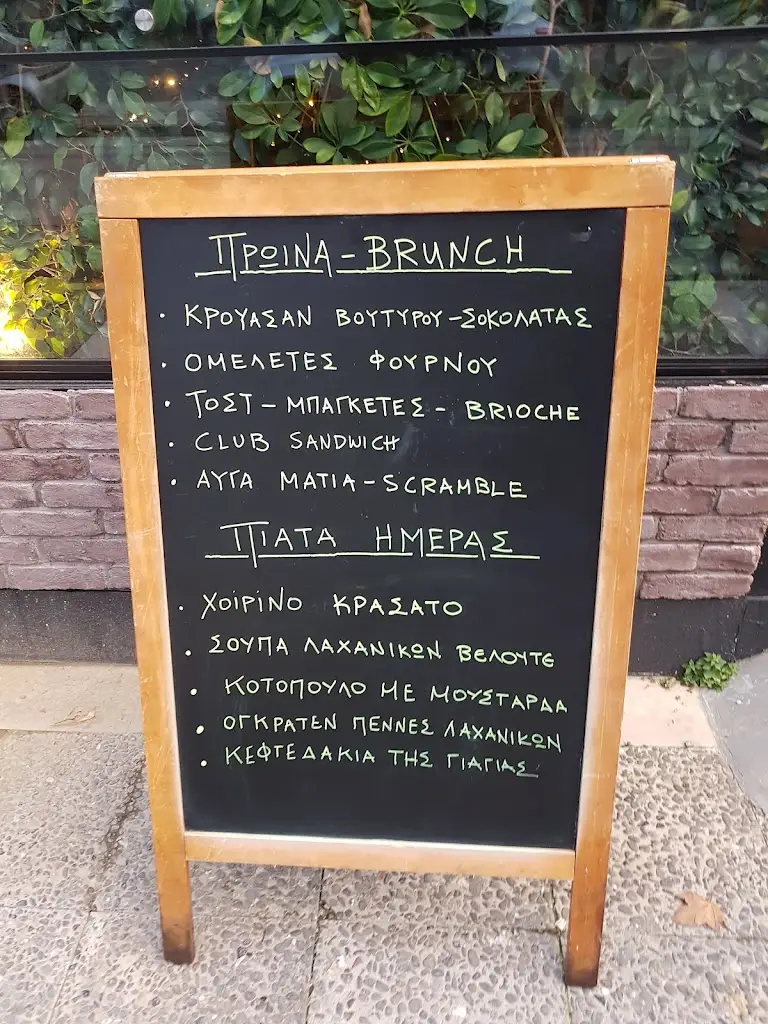 ΠΡΩΙΝΑ - BRUNCH
· ΚΡΟΥΑΣΑΝ ΒΟΥΤΥΡΟΥ - ΣΟΚΟΛΑΤΑΣ
· ΟΜΕΛΕΤΕΣ ΦΟΥΡΝΟΥ
· ΤΟΣΤ - ΜΠΑΓΚΕΤΕΣ - BRIOCHE
· CLUB SANDWICH
· ΑΥΓΑ ΜΑΤΙΑ - SCRAMBLE
ΠΙΑΤΑ ΗΜΕΡΑΣ
· ΧΟΙΡΙΝΟ ΚΡΑΣΑΤΟ
· ΣΟΥΠΑ ΛΑΧΑΝΙΚΩΝ ΒΕΛΟΥΤΕ
· ΚΟΤΟΠΟΥΛΟ ΜΕ ΜΟΥΣΤΑΡΔΑ
· ΟΓΚΡΑΤΕΝ ΠΕΝΝΕΣ ΛΑΧΑΝΙΚΩΝ
· ΚΕΦΤΕΔΑΚΙΑ ΤΗΣ ΓΙΑΓΙΑΣ